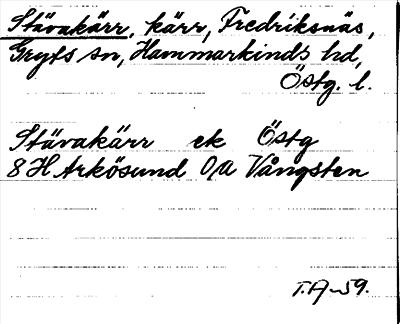 Stävakärr, kärr, Fredriksnäs,
Gryts sn, Hammarkinds hd,
Östg. l.
Stävakärr ek Östg
8 H Arkösund O/a Vångsten
T.A-59.